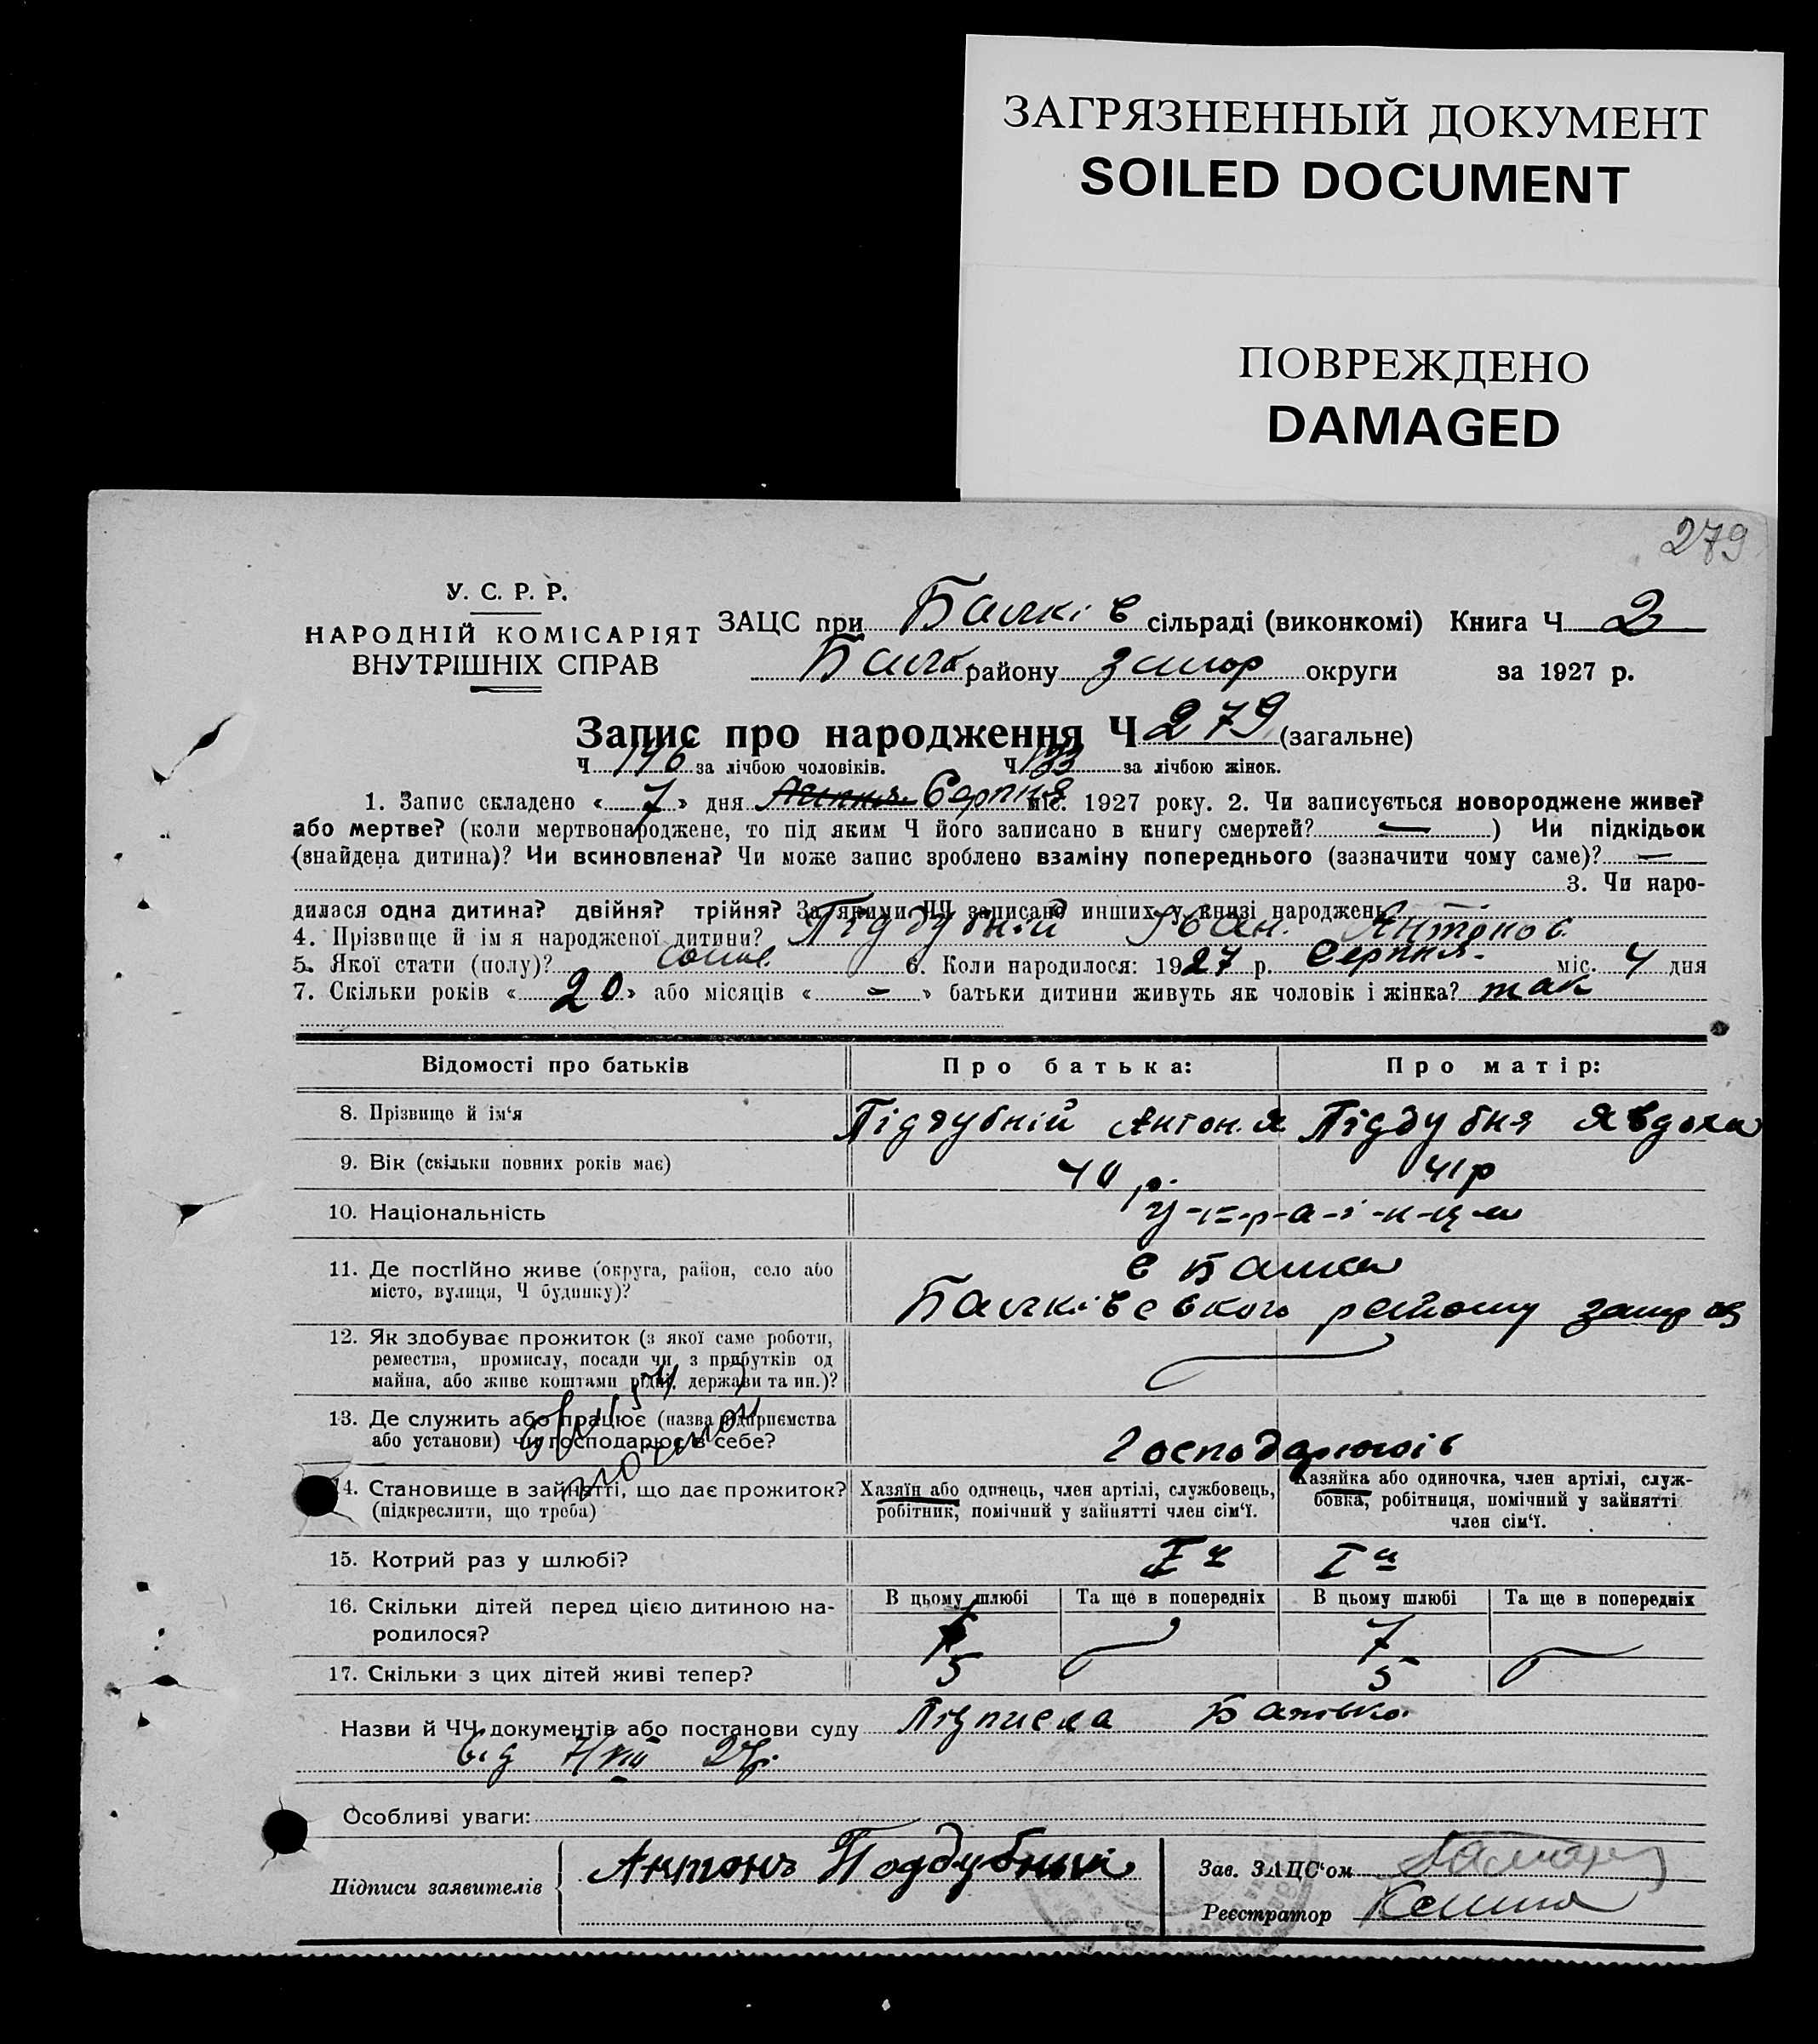 ЗАГРЯЗНЕННЫЙ ДОКУМЕНТ
SOILED DOCUMENT
ПОВРЕЖДЕНО
DAMAGED
279
У. С. Р. Р.
НАРОДНІЙ КОМІСАРІЯТ
ВНУТРІШНІХ СПРАВ
ЗАЦС при Балків сільраді (виконкомі) Книга Ч 2
Балк району запор округи за 1927 р.
Запис про народження Ч 279 (загальне)
Ч 146 за лічбою чоловіків. Ч 133 за лічбою жінок.
1. Запис складено « 7 » дня Липня Серпня міс. 1927 року. 2. Чи записується новороджене живе?
або мертве? (коли мертвонароджене, то під яким Ч його записано в книгу смертей? — ) Чи підкідьок
(знайдена дитина)? Чи всиновлена? Чи може запис зроблено взаміну попереднього (зазначити чому саме)? —
3. Чи наро-
дилася одна дитина? двійня? трійня? За якими ЧЧ записано инших у книзі народжень
4. Прізвище й ім я народженої дитини? Підубний Іван Антонов
5. Якої стати (полу)? 6. Коли народилося: 1927 р. Серпня міс. 4 дня
7. Скільки років « 20 » або місяців « - » батьки дитини живуть як чоловік і жінка? так
Відомості про батьків Про батька: Про матір:
8. Прізвище й ім‘я Піддубній Антон Піддубня Явдоха
9. Вік (скільки повних років має) 40 р. 41 р
10. Національність у-к-р-а-ї-н-ці
11. Де постійно живе (округа, район, село або
місто, вулиця, Ч будинку)? с Балки
Балківського району запор
12. Як здобуває прожиток (з якої саме роботи,
ремества, промислу, посади чи з прибутків од
майна, або живе коштами рідні, держави та ин.)?
13. Де служить або працює (назва підприємства
або установи) чи господарює в себе?
14. Становище в зайнятті, що дає прожиток?
(підкреслити, що треба)
Хазяїн або одинець, член артілі, службовець,
робітник, помічний у зайнятті член сім‘ї.
Хазяйка або одиночка, член артілі, служ-
бовка, робітниця, помічний у зайнятті
член сім‘ї.
15. Котрий раз у шлюбі? I й I й
16. Скільки дітей перед цією дитиною на-
родилося?
В цьому шлюбі Та ще в попередніх В цьому шлюбі Та ще в попередніх
7
17. Скільки з цих дітей живі тепер? 5 5
Назви й ЧЧ документів або постанови суду Підписка Батька
від 7/VIII 27р.
Особливі уваги:
Підписи заявителів Антонъ Поддубный
Зав. ЗАЦС‘ом
Реєстратор